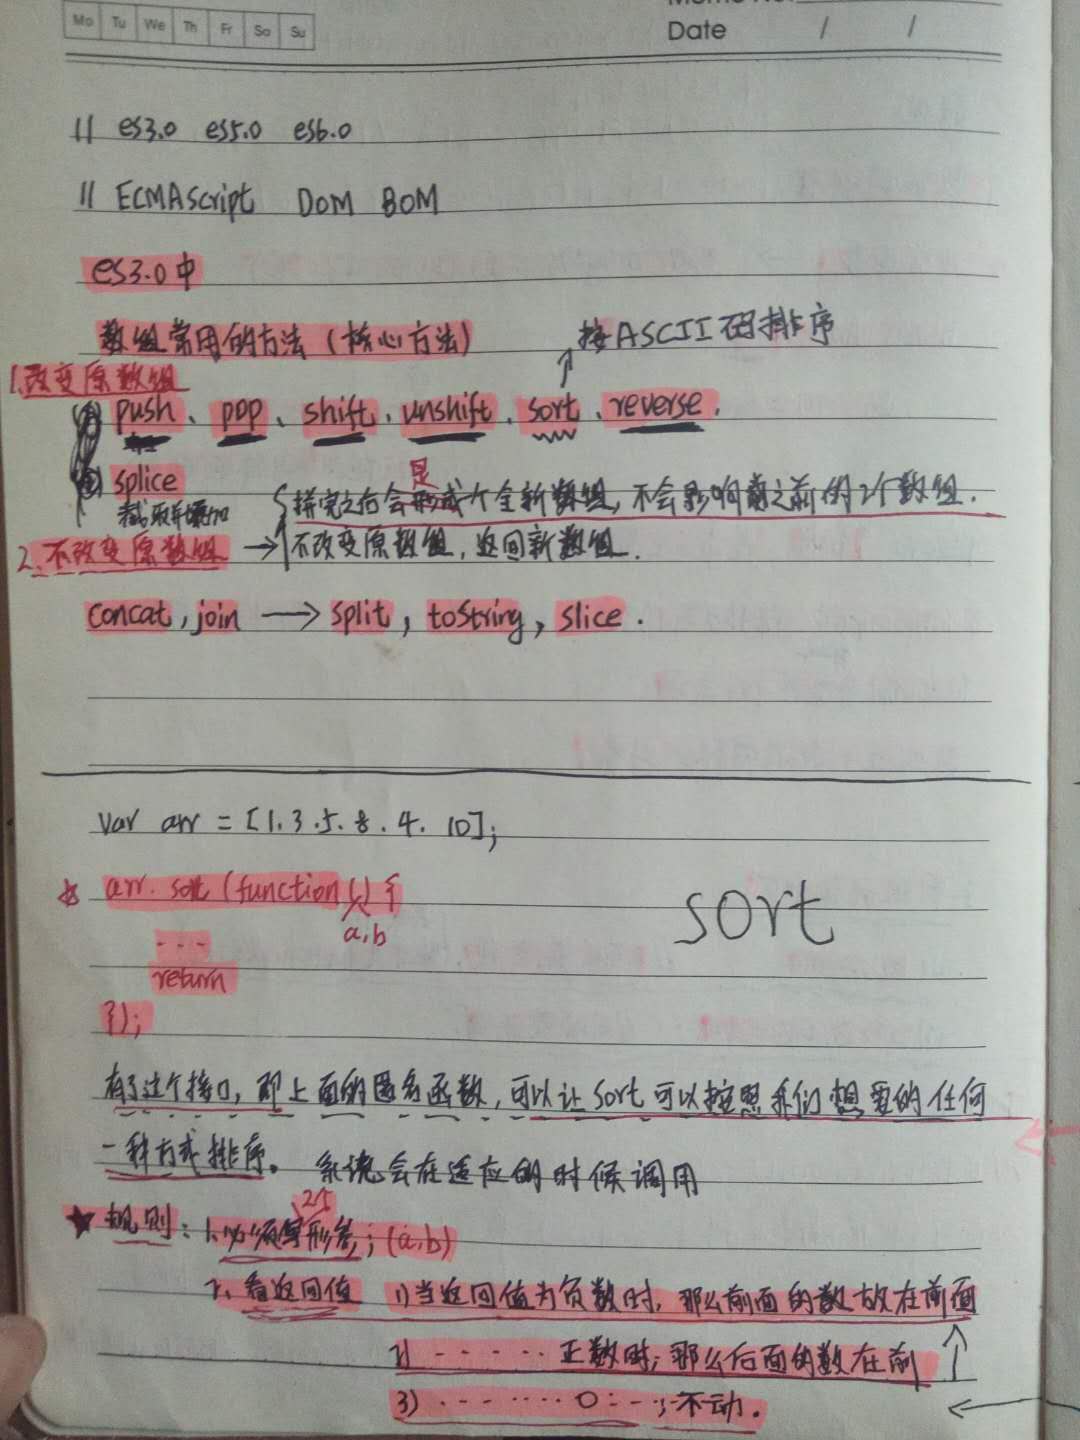 Mo Tu We Th Fr Sa Su
Memo No.
Date / /
// es3.0 es5.0 es6.0
// ECMAScript DOM BOM
es3.0中
数组常用的方法（核心方法）
按ASCII码排序
1.改变原数组
① push、pop、shift、unshift、sort、reverse.
② splice
截取并增加
是
拼完之后会形成个全新数组，不会影响之前的2个数组.
2.不改变原数组 → 不改变原数组，返回新数组.
concat, join → split, toString, slice.
var arr = [1.3.5.8.4.10];
arr. sort (function () {
a,b
sort
---
return
});
有了这个接口，即上面的匿名函数，可以让sort可以按照我们想要的任何
一种方式排序。系统会在适应的时候调用
2个
★ 规则：1.必须写形参；(a,b)
2、看返回值 1)当返回值为负数时，那么前面的数放在前面
2) ······ 正数时；那么后面的数在前
3) ······· 0：··；不动.